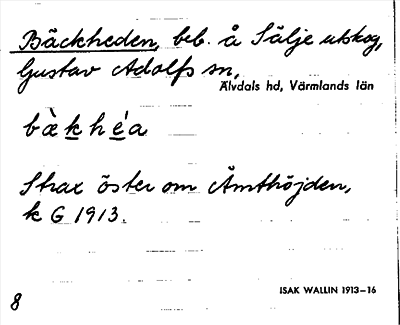 Bäckheden, beb. å Sälje utskog,
Gustav Adolfs sn,
Älvdals hd, Värmlands län
bæ̀k héa
Strax öster om Ämthöjden,
k G 1913.
ISAK WALLIN 1913-16
8